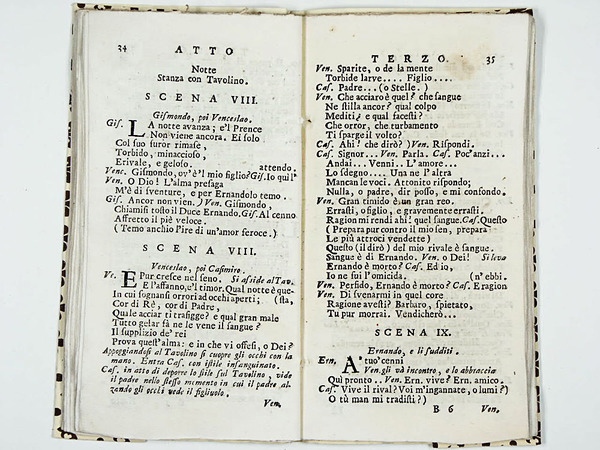 34
ATTO
Notte
Stanza con Tavolino.
SCENA VIII.
Gismondo, poi Venceslao.
Gis. LA notte avanza; e'l Prence
Non viene ancora. Ei solo
Col suo furor rimase,
Torbido, minaccioso,
Erivale, e geloso. attendo.
Venc. Gismondo, ov'è'l mio figlio? Gis. Io qui l'
Ven. O Dio! L'alma presaga
M'è di sventure, e per Ernando lo temo.
Gis. Ancor non vien.) Ven. Gismondo,
Chiamisi tosto il Duce Ernando. Gis. Al cenno
Affretto il piè veloce.
( Temo anchio l'ire di un'amor feroce. )
SCENA VIII.
Venceslao, poi Casimiro.
Ve. E Pur cresce nel seno. Si asside al Tav.
E l'affanno, e'l timor. Qual notte è que-
In cui sognansi orrori ad occhi aperti; (sta,
Cor di Rè, cor di Padre,
Quale acciar ti trafigge? e qual gran male
Tutto gelar fà ne le vene il sangue?
Il supplizio de' rei
Prova quest'alma: e in che vi offesi, o Dei?
Appoggiandosi al Tavolino si cuopre gli occhi con la
mano. Entra Cas. con istile insanguinato.
Cas. in atto di deporre lo stile sul Tavolino, vide
il padre nello stesso momento in cui il padre al-
zando gli occhi vede il figliuolo.
Ven.
TERZO.
35
Ven. Sparite, o de la mente
Torbide larve.... Figlio....
Cas. Padre... (o Stelle. )
Ven. Che acciaro è quel? che sangue
Ne stilla ancor? qual colpo
Mediti, e qual facesti?
Che orror, che turbamento
Ti sparge il volto?
Cas. Ahi! che dirò? ) Ven. Rispondi.
Cas. Signor... Ven. Parla. Cas. Poc'anzi...
Andai... Venni.. L'amore...
Lo sdegno.... Una ne l'altra
Mancan le voci. Attonito rispondo;
Nulla, o padre, dir posso, e mi confondo.
Ven. Gran timido è un gran reo.
Errasti, o figlio, e gravemente errasti.
Ragion mi rendi ahi! quel sangue. Cas. Questo
( Prepara pur contro il mio sen, prepara
Le più atroci vendette)
Questo (il dirò) del mio rivale è sangue.
Sangue è di Ernando. Ven. o Dei! Si leva
Ernando è morto? Cas. Ed io,
Io ne fui l'omicida. (n'ebbi.
Ven. Perfido, Ernando è morto? Cas. E ragion
Ven. Di svenarmi in quel core
Ragione avesti? Barbaro, spietato,
Tu pur morrai. Vendicherò...
SCENA IX.
Ernando, e li sudditi.
Ern. A' tuo' cenni
Ven. gli và incontro, e lo abbraccia
Qui pronto.. Ven. Ern. vive? Ern. amico.
Cas. Vive il rival? Voi m'ingannate, o lumi?)
O tù man mi tradisti?)
B 6
Ven.